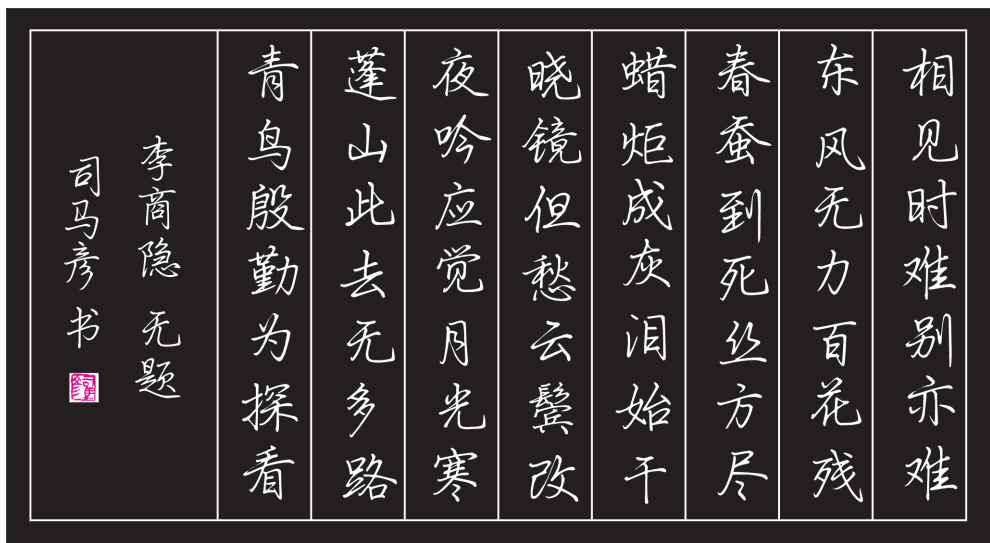 相见时难别亦难
东风无力百花残
春蚕到死丝方尽
蜡炬成灰泪始干
晓镜但愁云鬓改
夜吟应觉月光寒
蓬山此去无多路
青鸟殷勤为探看
李商隐 无题
司马彦 书